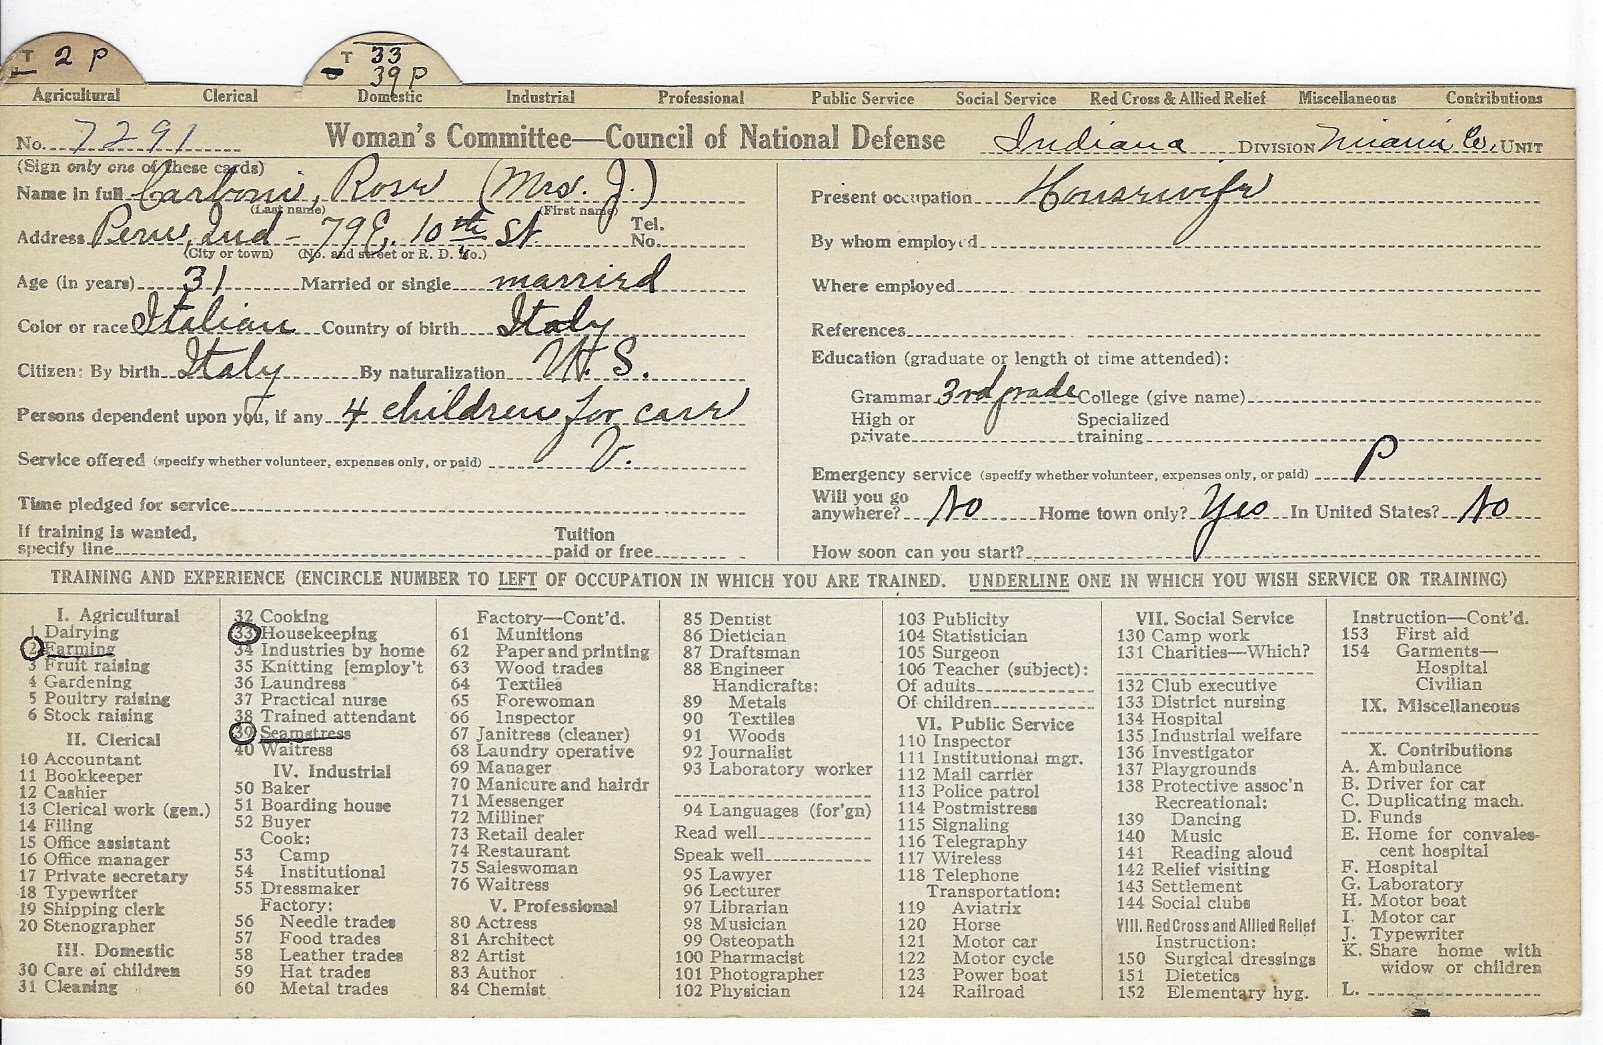 T 2 P
T 33
39 P
Agricultural Clerical Domestic Industrial Professional Public Service Social Service Red Cross & Allied Relief Miscellaneous Contributions
No. 7291 Woman's Committee—Council of National Defense Indiana DIVISION Miami Co. UNIT
(Sign only one of these cards)
Name in full Carboni, Rose (Mrs. J.)
(Last name) (First name)
Address Peru, Ind - 79 E. 10th St. Tel. No.
(City or town) (No. and street or R. D. No.)
Age (in years) 31 Married or single married
Color or race Italian Country of birth Italy
Citizen: By birth Italy By naturalization U.S.
Persons dependent upon you, if any 4 children for care
Service offered (specify whether volunteer, expenses only, or paid) V.
Time pledged for service
If training is wanted, Tuition
specify line paid or free
Present occupation Housewife
By whom employed
Where employed
References
Education (graduate or length of time attended):
Grammar 3rd grade College (give name)
High or Specialized
private training
Emergency service (specify whether volunteer, expenses only, or paid) P
Will you go
anywhere? No Home town only? Yes In United States? No
How soon can you start?
TRAINING AND EXPERIENCE (ENCIRCLE NUMBER TO LEFT OF OCCUPATION IN WHICH YOU ARE TRAINED. UNDERLINE ONE IN WHICH YOU WISH SERVICE OR TRAINING)
I. Agricultural
1 Dairying
2 Farming
3 Fruit raising
4 Gardening
5 Poultry raising
6 Stock raising
II. Clerical
10 Accountant
11 Bookkeeper
12 Cashier
13 Clerical work (gen.)
14 Filing
15 Office assistant
16 Office manager
17 Private secretary
18 Typewriter
19 Shipping clerk
20 Stenographer
III. Domestic
30 Care of children
31 Cleaning
32 Cooking
33 Housekeeping
34 Industries by home
35 Knitting [employ't
36 Laundress
37 Practical nurse
38 Trained attendant
39 Seamstress
40 Waitress
IV. Industrial
50 Baker
51 Boarding house
52 Buyer
Cook:
53 Camp
54 Institutional
55 Dressmaker
Factory:
56 Needle trades
57 Food trades
58 Leather trades
59 Hat trades
60 Metal trades
Factory—Cont'd.
61 Munitions
62 Paper and printing
63 Wood trades
64 Textiles
65 Forewoman
66 Inspector
67 Janitress (cleaner)
68 Laundry operative
69 Manager
70 Manicure and hairdr
71 Messenger
72 Milliner
73 Retail dealer
74 Restaurant
75 Saleswoman
76 Waitress
V. Professional
80 Actress
81 Architect
82 Artist
83 Author
84 Chemist
85 Dentist
86 Dietician
87 Draftsman
88 Engineer
Handicrafts:
89 Metals
90 Textiles
91 Woods
92 Journalist
93 Laboratory worker
94 Languages (for'gn)
Read well
Speak well
95 Lawyer
96 Lecturer
97 Librarian
98 Musician
99 Osteopath
100 Pharmacist
101 Photographer
102 Physician
103 Publicity
104 Statistician
105 Surgeon
106 Teacher (subject):
Of adults
Of children
VI. Public Service
110 Inspector
111 Institutional mgr.
112 Mail carrier
113 Police patrol
114 Postmistress
115 Signaling
116 Telegraphy
117 Wireless
118 Telephone
Transportation:
119 Aviatrix
120 Horse
121 Motor car
122 Motor cycle
123 Power boat
124 Railroad
VII. Social Service
130 Camp work
131 Charities—Which?
132 Club executive
133 District nursing
134 Hospital
135 Industrial welfare
136 Investigator
137 Playgrounds
138 Protective assoc'n
Recreational:
139 Dancing
140 Music
141 Reading aloud
142 Relief visiting
143 Settlement
144 Social clubs
VIII. Red Cross and Allied Relief
Instruction:
150 Surgical dressings
151 Dietetics
152 Elementary hyg.
Instruction—Cont'd.
153 First aid
154 Garments—
Hospital
Civilian
IX. Miscellaneous
X. Contributions
A. Ambulance
B. Driver for car
C. Duplicating mach.
D. Funds
E. Home for convales-
cent hospital
F. Hospital
G. Laboratory
H. Motor boat
I. Motor car
J. Typewriter
K. Share home with
widow or children
L.